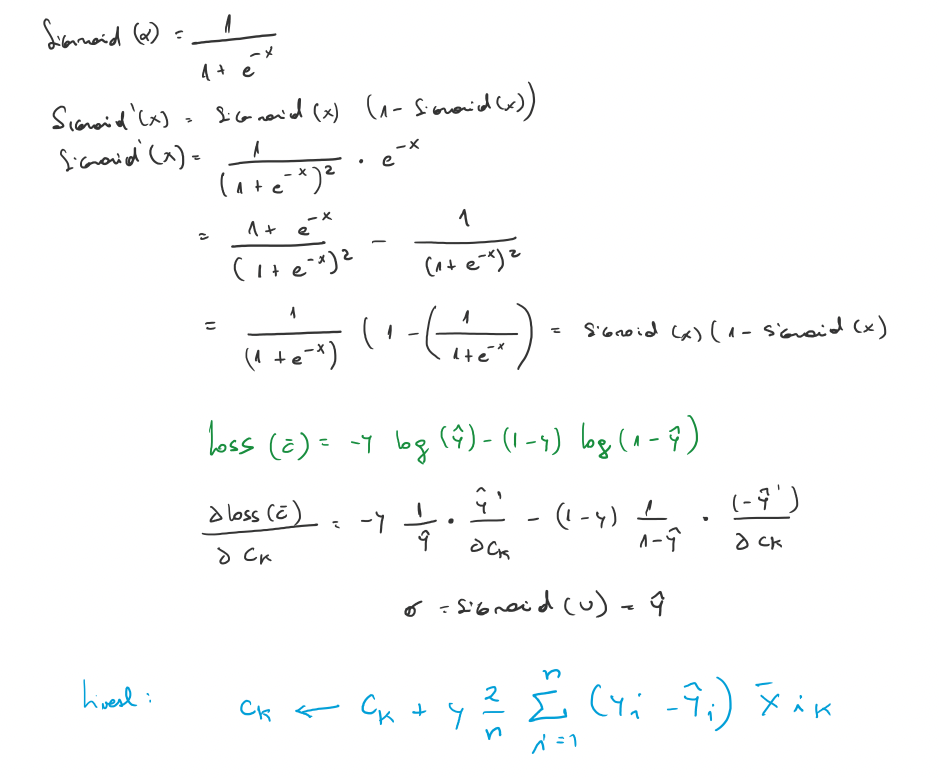 Sigmoid (x) = 1 / (1 + e^{-x})
Sigmoid'(x) = Sigmoid (x) (1 - Sigmoid (x))
Sigmoid'(x) = 1 / (1 + e^{-x})^2 · e^{-x}
= (1 + e^{-x}) / (1 + e^{-x})^2 - 1 / (1 + e^{-x})^2
= 1 / (1 + e^{-x}) (1 - (1 / (1 + e^{-x})) = Sigmoid (x) (1 - Sigmoid (x)
Loss (c̄) = -y log (ŷ) - (1 - y) log (1 - ŷ)
∂ loss (c̄) / ∂ c_K = -y 1/ŷ · ŷ' / ∂ c_K - (1 - y) 1 / (1 - ŷ) · (-ŷ') / ∂ c_K
σ = Sigmoid (u) = ŷ
c_K ← c_K + y 2/n ∑_{i=1}^{n} (y_i - ŷ_i) x̄_{iK}